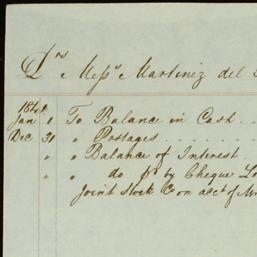 Drs Messrs Martinez del
184
Jan 1 To Balance in Cash . .
Dec 31 " Postages . . . . . .
" " Balance of Interest
" " do pr by Cheque Lo
Joint Stock Co on acct of M